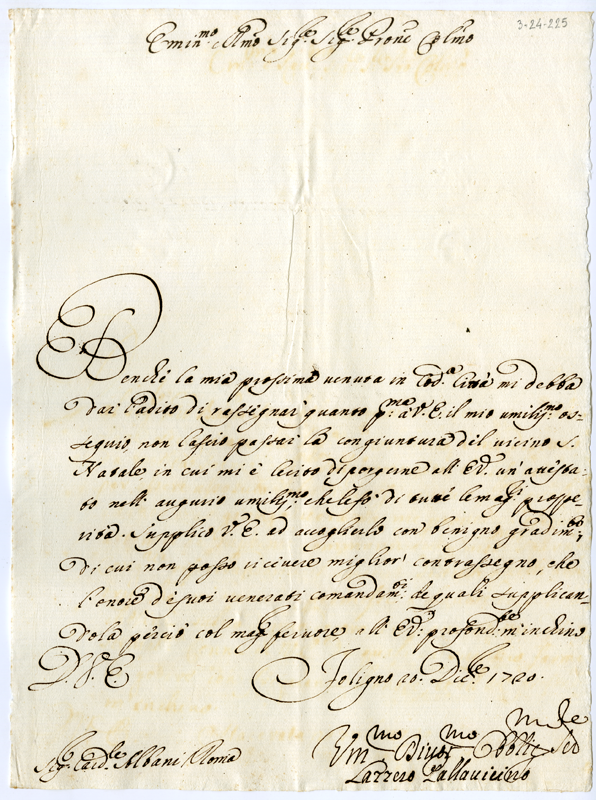 3-24-225
Emin.mo e Rmo Sig.re Sig.re Prone Colmo
Benche la mia prossima venuta in Cod.a Città mi debba
dar l'adito di rassegnar quanto p.ma à V. E. il mio umiliss.mo os-
sequio, non lascio passar la congiuntura del vicino S.
Natale, in cui mi è lecito di porgerne all' E.V. un' attesta-
to nell' augurio umiliss.mo, che le fo di tutte le mag.ri prospe-
rità. Supplico V. E. ad accoglierlo con benigno gradim.to,
di cui non posso ricivere miglior' contrassegno, che
l'onore de suoi venerati comandam.ti, de quali supplican-
dola perciò col mag.re fervore all' E.V. profond.te m'inchino
D. V. E.
Foligno 20. Dic.re 1720.
Um.mo Divot.mo Obblig.
Sig.re Card.le Albani Roma
Lazzero Pallavicino